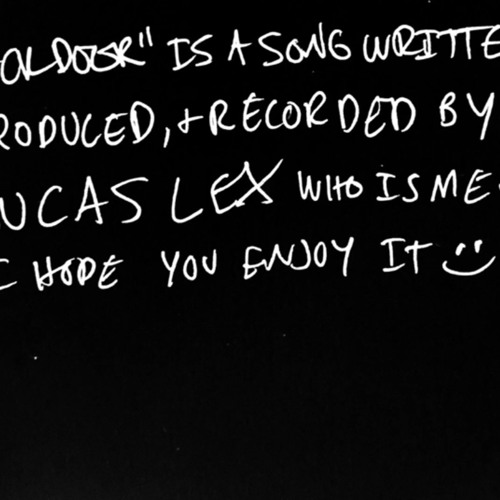 DOOR" IS A SONG WRITTE
RODUCED, + RECORDED BY
UCAS LEX WHO IS ME.
I HOPE YOU ENJOY IT :)